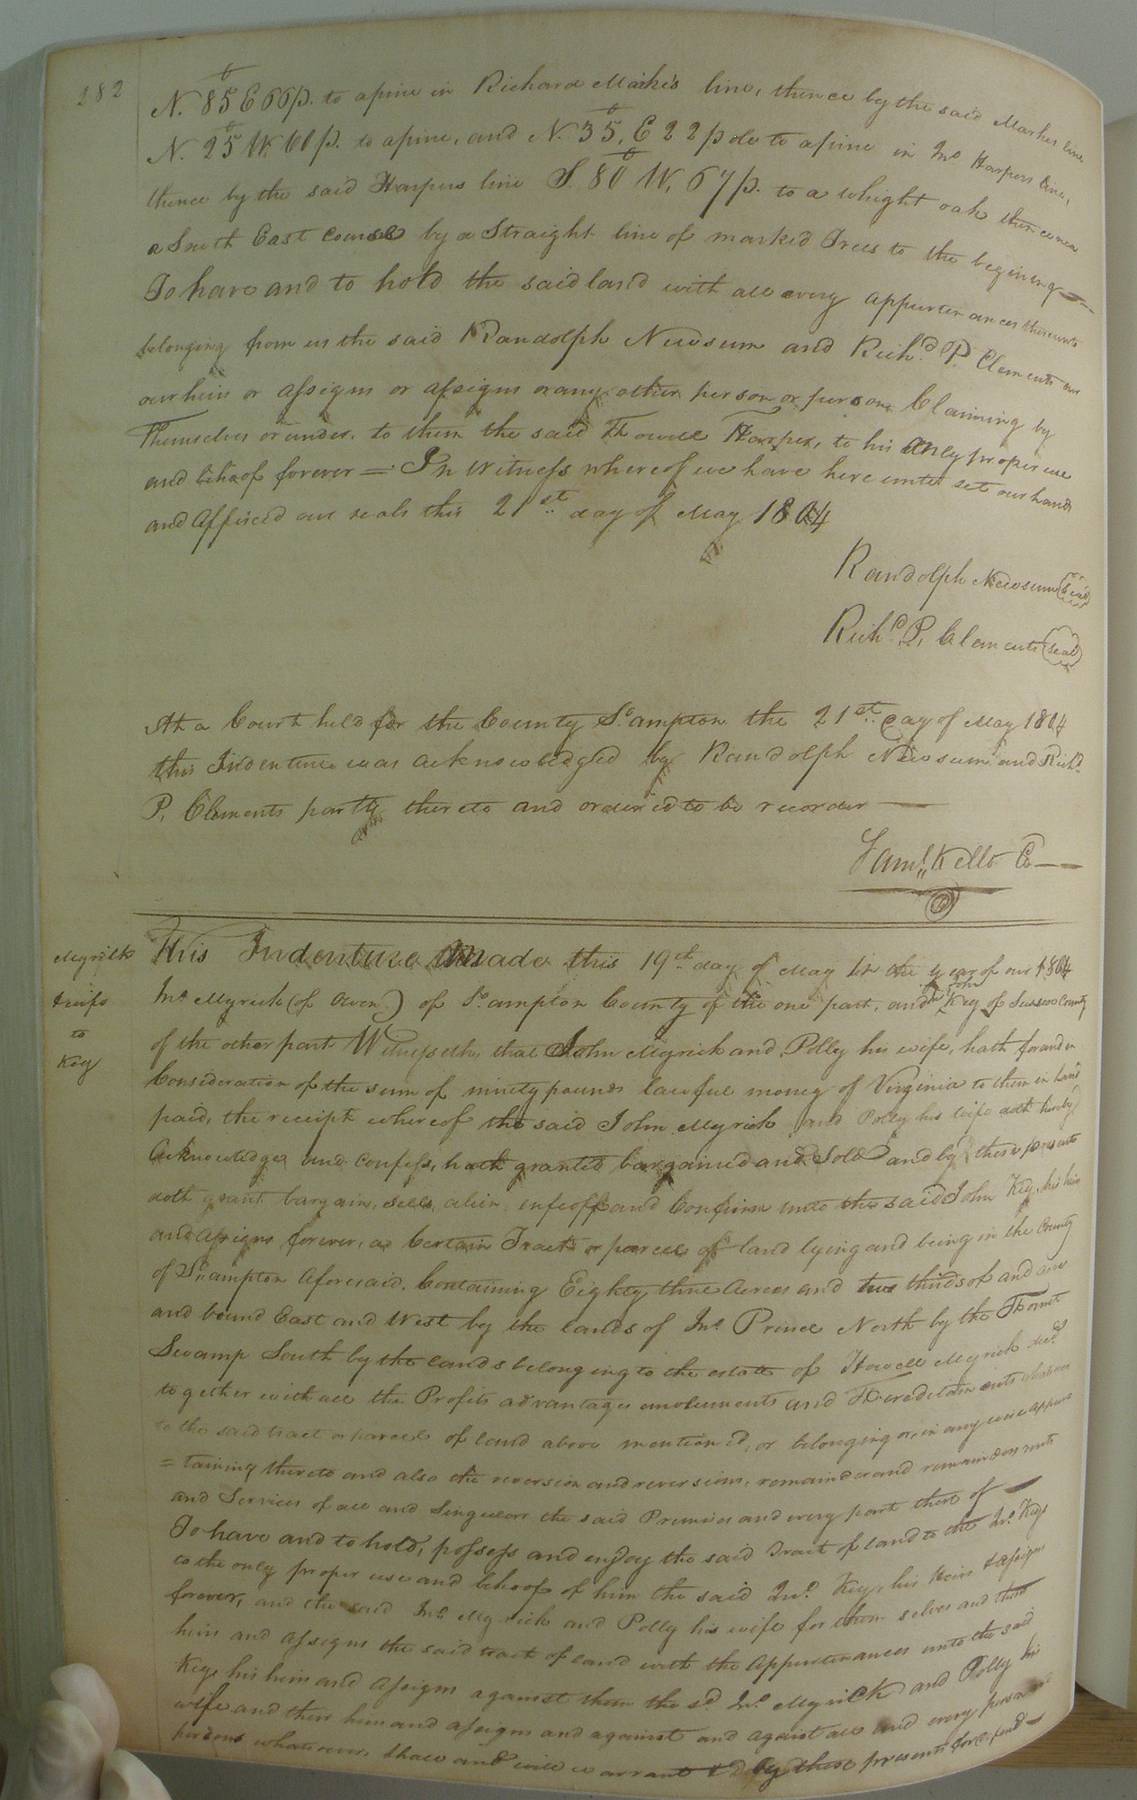 282
N. 85° E 66 p. to a pine in Richard Marks's line, thence by the said Markes line,
N. 25° W. 60 p. to a pine, and N. 35°, E 22 pole to a pine in Jno Harpers line,
thence by the said Harpers line S. 80° W, 67 p. to a whight oak thence near
a South East course by a Straight line of marked Trees to the begining
To have and to hold the said land with all every appurtenances thereunto
belonging from us the said Randolph Newsum and Richd P. Clements our
our heirs or assigns or assigns or any other person or persons Claiming by
Themselves or under. to them the said Howell Harper, to his only proper use
and behoof forever = In Witness whereof we have here unto set our hands
and affixed our seals this 21st day of May 1804
Randolph Newsum (seal)
Richd. P. Clements (seal)
At a Court held for the County So ampton the 21st. day of May 1804
this Indenture was acknowledged by Randolph Newsum and Richd.
P. Clements partys thereto and ordered to be recorder
Saml. Kello C
Myrick
&wife
to
Key
This Indenture Made this 19th day of May in the year of our 1804
Jno Myrick (of Owen) of So ampton County of the one part, and John Key of Sussex County
of the other part Witnesseth, that John Myrick and Polly his wife, hath for and in
Consideration of the sum of ninety pounds lawfull money of Virginia to them in hand
paid, the receipt whereof the said John Myrick and Polly his wife doth hereby
Acknowledge and confess, hath granted bargained and Sold and by these presents
doth grant, bargain, sell, alien infeoff and Confirm unto the said John Key, his heirs
and assigns forever, a Certain Tract or parcel of land lying and being in the County
of So. ampton Aforesaid. Containing Eighty three Acres and two thirds of and acre
and bound East and West by the lands of Jno Prince North by the
Swamp South by the lands belonging to the estate of Howell Myrick decd
together with all the Profits advantages emoluments and Hereditaments
to the said tract or parcel of land above mentioned, or belonging or in any wise appur
= taining thereto and also the reversion and reversions, remainder and remainders rents
and Services of all and Singular the said Premises and every part there of
To have and to hold, possess and enjoy the said Tract of land to the Jno Keys
to the only proper use and behoof of him the said Jno. Key, his heirs & assigns
forever, and the said Jno Myrick and Polly his wife for them selves and their
heirs and assigns the said tract of land with the Appurtenances unto the said
Key, his heirs and assigns against them the sd Jno Myrick and Polly his
wife and their heirs and assigns and against and against all and every person or
persons whatsoever, shall and will warrant & D by these presents forever fend